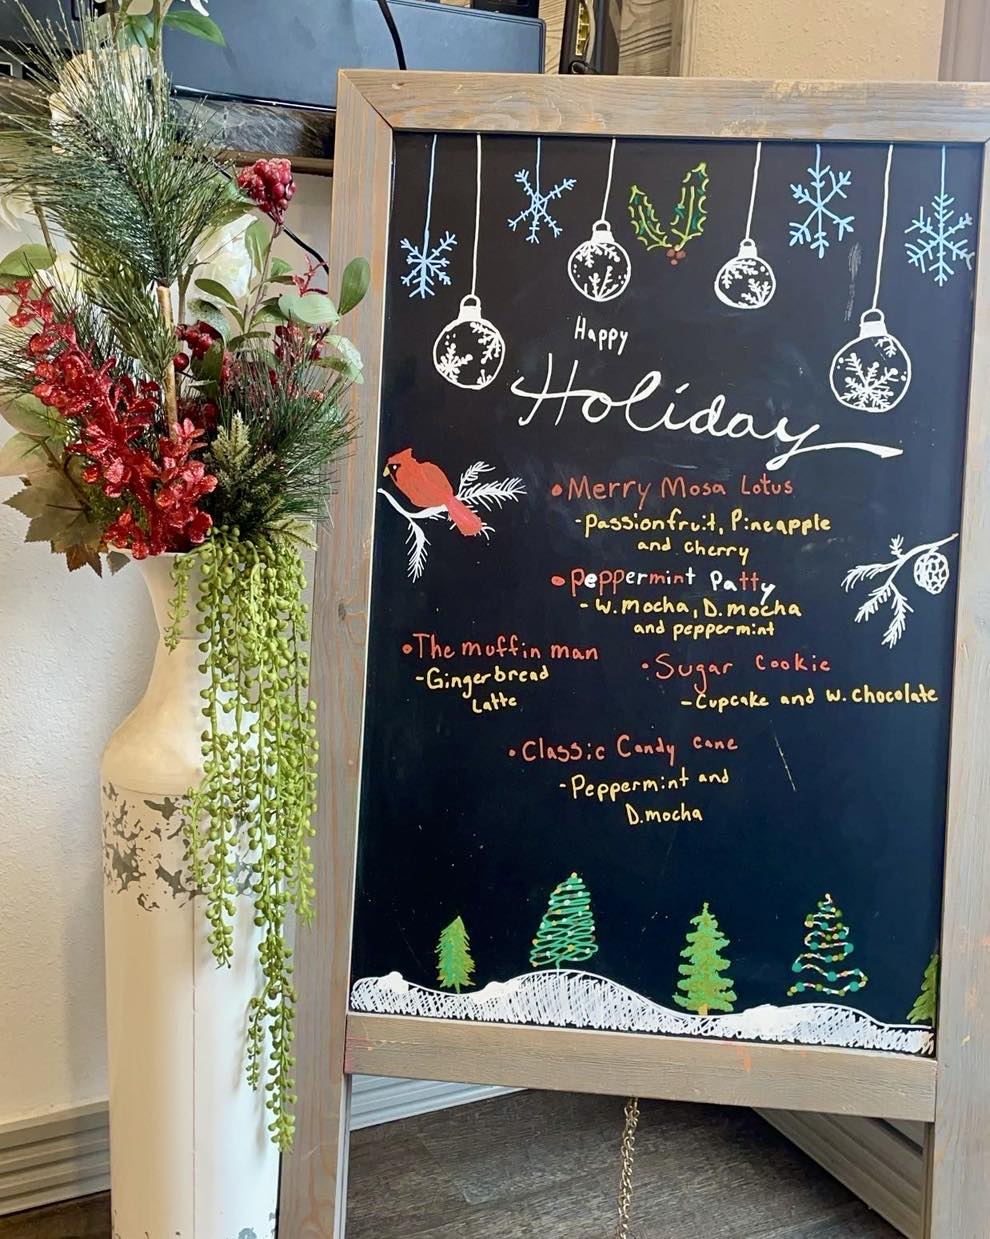 Happy
Holiday
•Merry Mosa Lotus
-passionfruit, Pineapple
and cherry
•peppermint patty
-w.mocha, D.mocha
and peppermint
•The muffin man
-Gingerbread
Latte
•Sugar Cookie
-Cupcake and w.chocolate
•Classic Candy cane
-Peppermint and
D.mocha